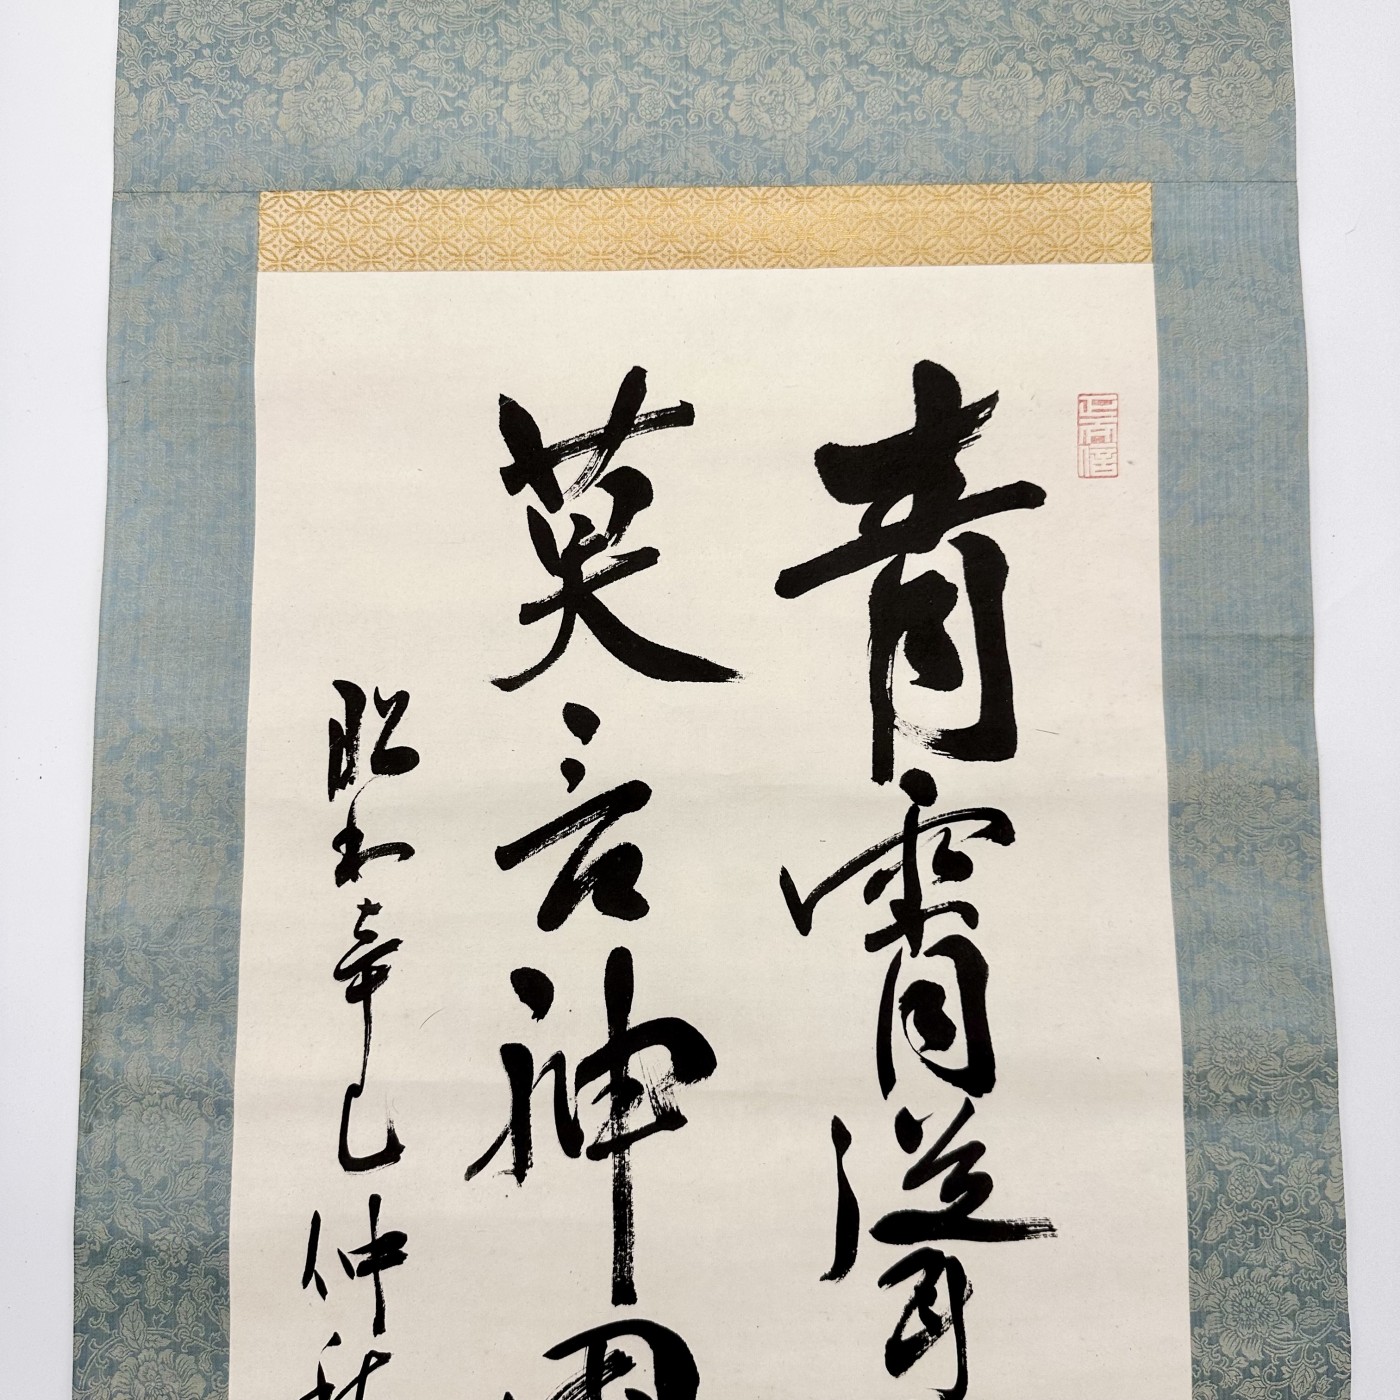 青霄聳
莫言神
昭和辛巳仲秋